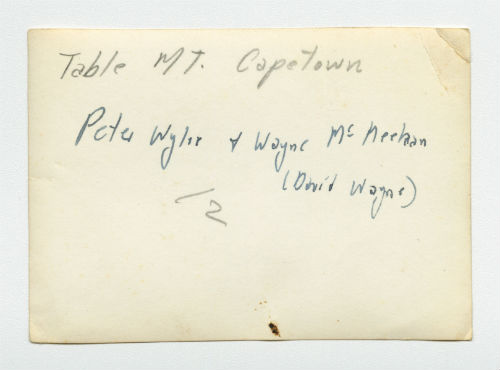 Table MT. Capetown
Peter Wylie + Wayne Mc Meekan
(David Wayne)
12